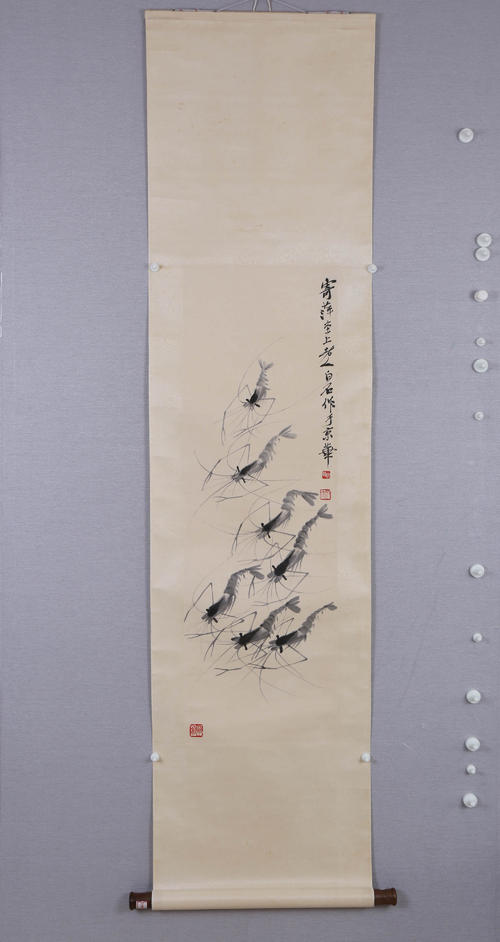 寄萍堂上老人白石作于京華